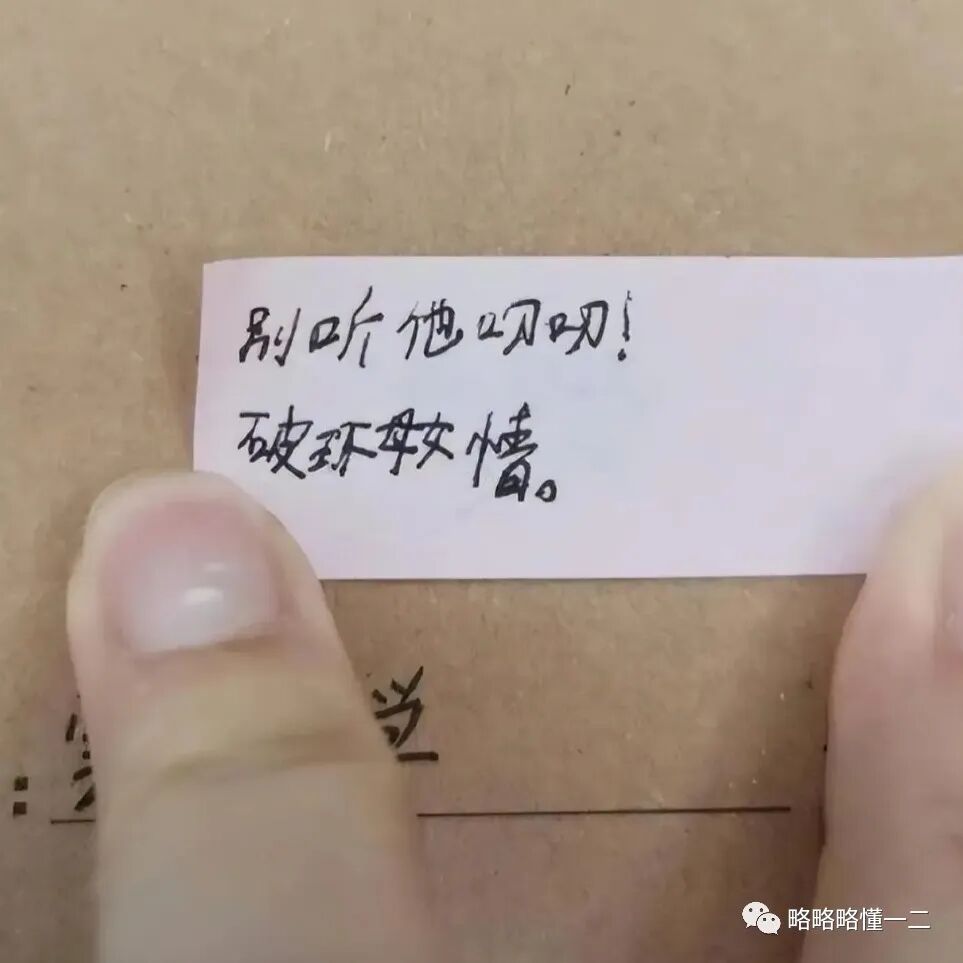 别听他叨叨!
破环母女情。
学
略略略懂一二